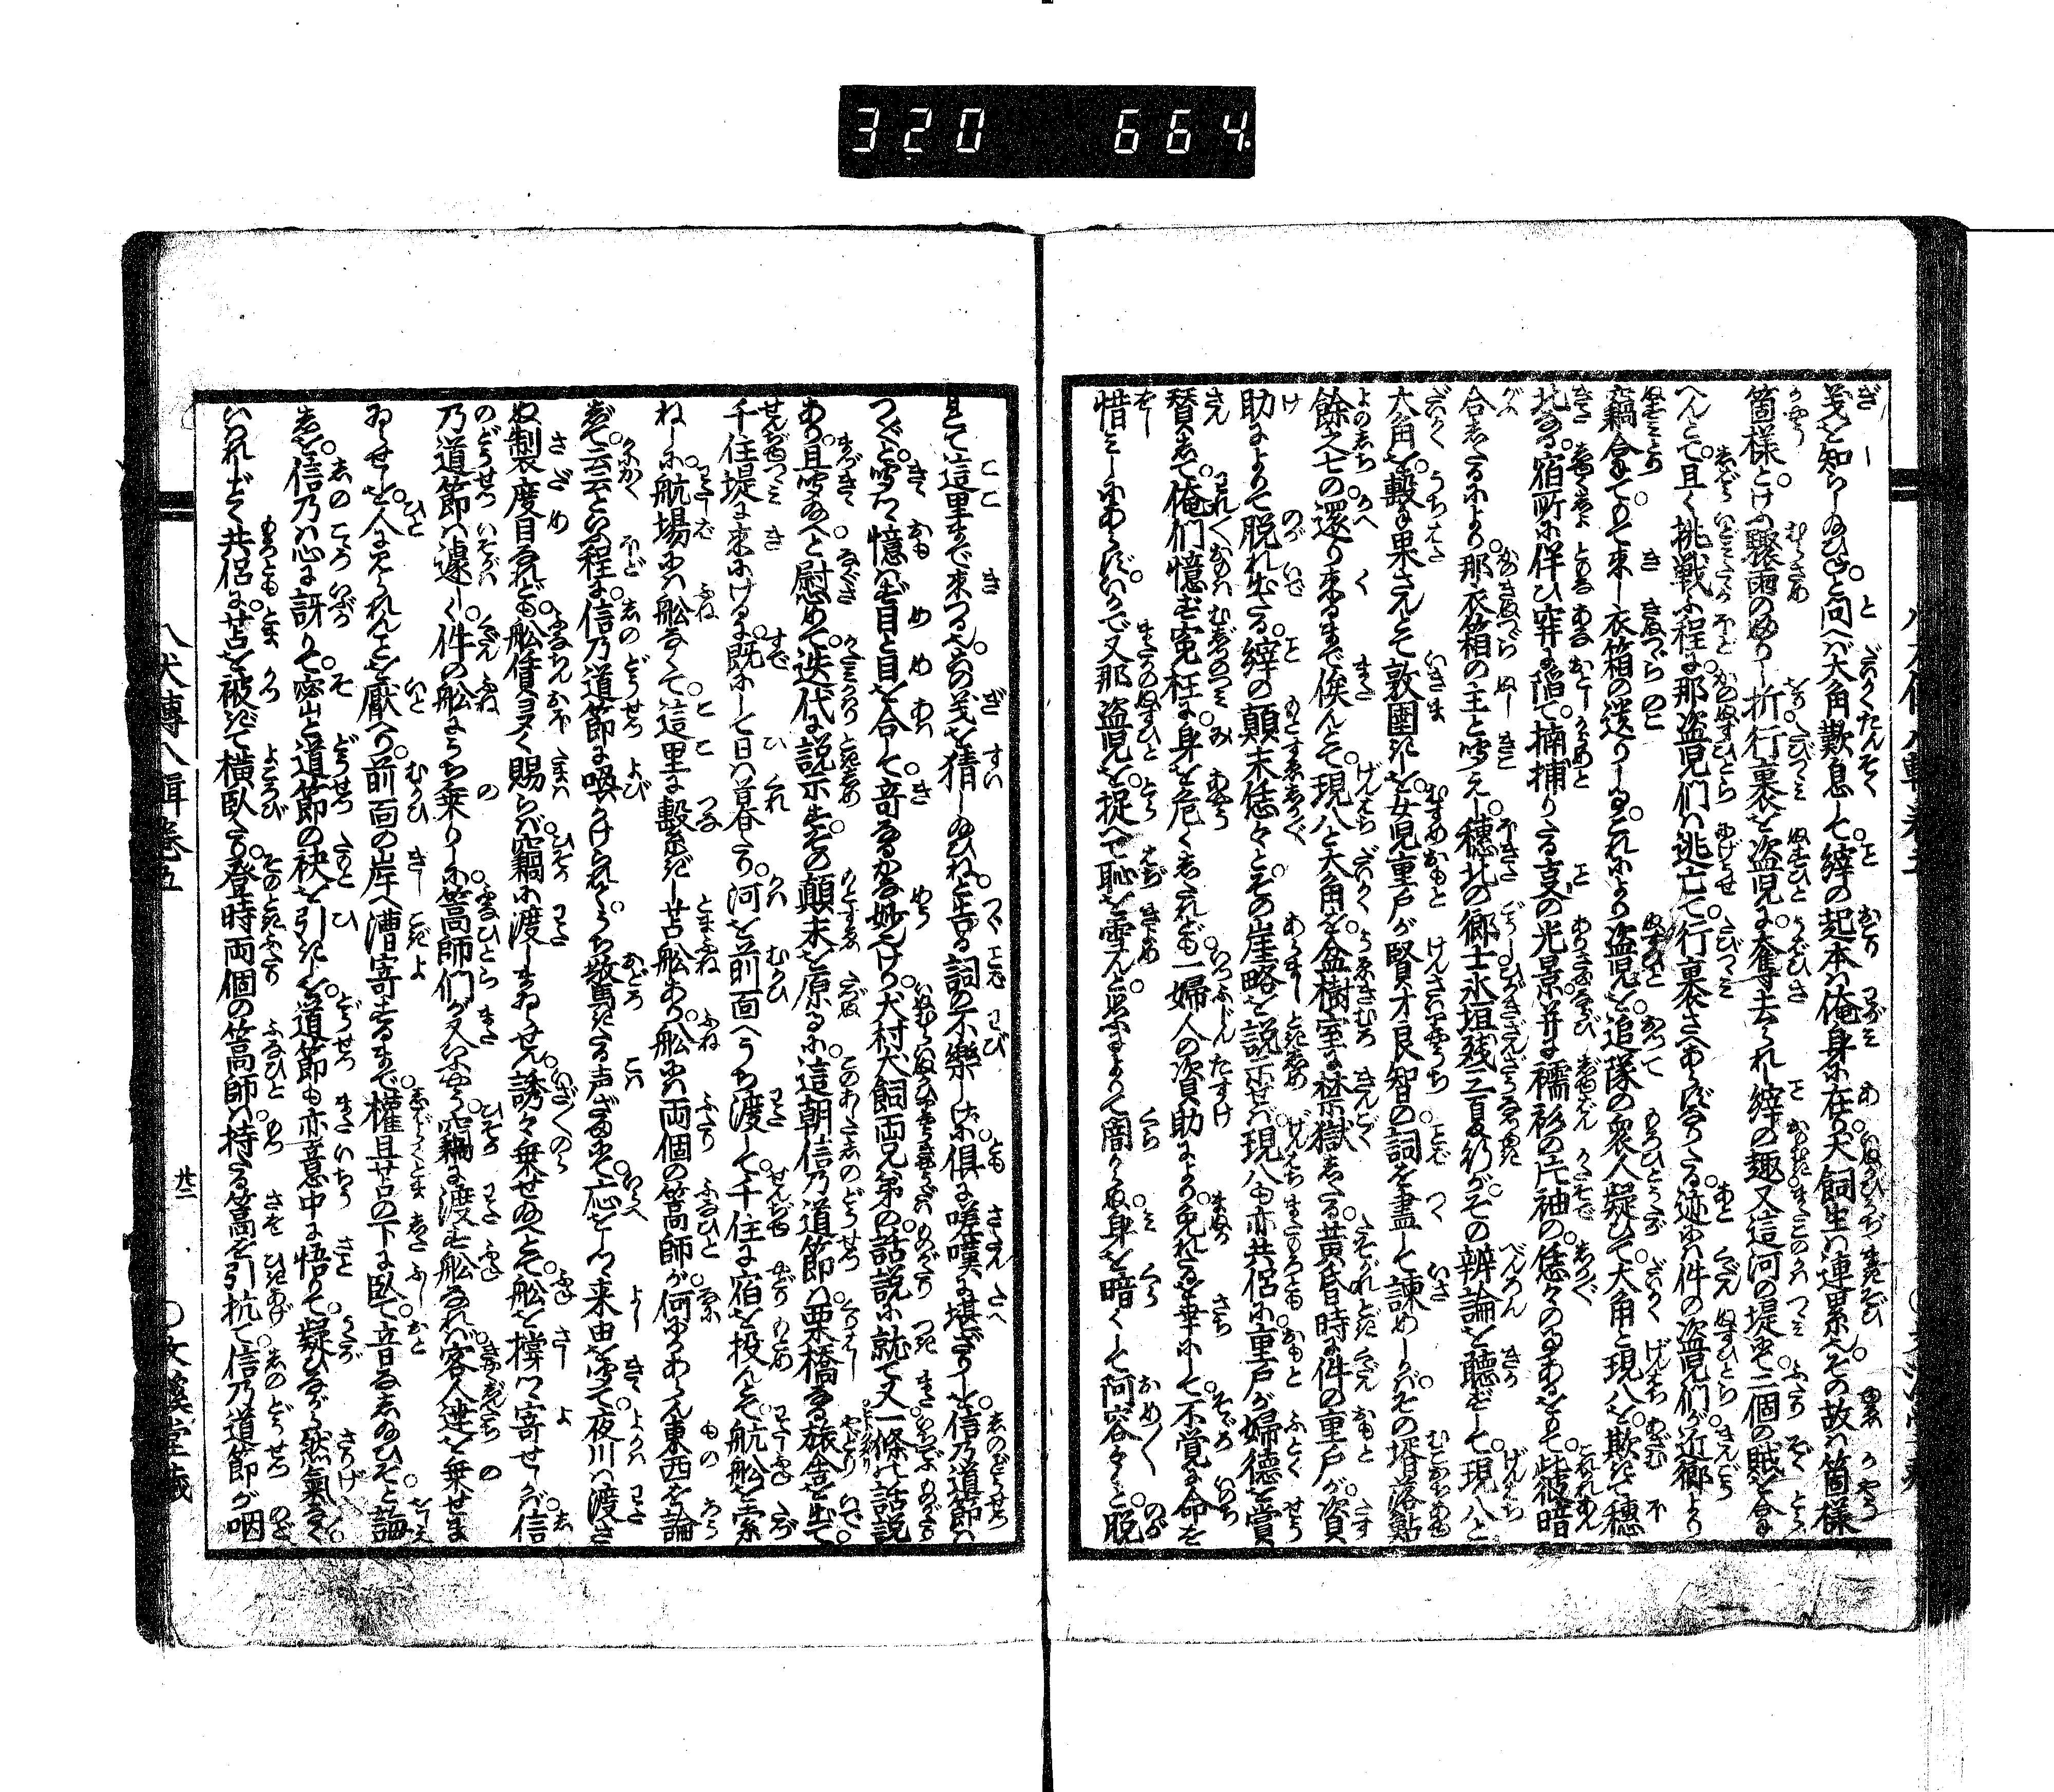 320 664
義を知らしめ給ひねと問へば大角歎息して縡の起本は俺身に在り犬飼生は連累その故は箇様
箇様とけふ驟雨のゆり折行裹を盗児に奪去られ縡の趣又這河の堤にて二個の賊を
へんとて且く挑戦ふ程に那盗児們は逃亡て行裹さへあらずなりたる迹には件の盗児們が近郷より
竊合して来し衣箱の遺りしあるこれにより盗児を追隊の衆人疑ひて大角と現八を欺きて穂
北なる宿所に伴ひ穽に陥て捕りたる事の光景并に襦衫の片袖の恁々のあるをもて此彼暗
合したるにより那衣箱の主と聞えし穂北の郷士氷垣残三夏行がその辨論を聴ずして現八と
大角を轂果さんとて敦圉きしを女児重戸が賢才良智の詞を盡して諫めしがその壻落鮎
餘之七の還り来るまで俟んとて現八と大角を盆樹室に禁獄したる黄昏時に件の重戸が資
助によりて脱れ出たる縡の顛末恁々とその崖略を説示せば現八も亦共侶に重戸が婦徳を賞
賛して俺們憶ず寃枉に身を危くしたれども一婦人の資助により免れたるを幸にして不覚に命を
惜みしにあらずいかで又那盗児を捉へて恥を雪んと思ふによりて闇からぬ身を暗くして阿容々々と脱
て這里まで来つるその義を猜し給ひねと告る詞の不樂しげに倶に嗟嘆に堪ざりしを信乃道節は
つくと聞て憶ず目と目を合して竒なるかな妙也けり犬村犬飼両兄弟の話説に就て又一條の話説
あり且聞給へと慰めて迭代に説示すその顛末を原るに這朝信乃道節は栗橋なる旅舎を出て
千住堤に来にけるに既にして日は暮たり河を前面へうち渡して千住に宿を投んとて航舩を索
ねしに航場には舩なくて這里に繋ぎし苫舩あり舩には両個の篙師が何にかあらん東西を論
じて云云といふ程に信乃道節に喚かけられてうち驚きたる声ざまにて応をしつゝ来由を聞て夜川は渡さ
ぬ制度目なれども舩賃多く賜らば竊に渡しまゐらせん誘々乗せ給へとて舩を撐し寄せしが信
乃道節は遽しく件の舩にうち乗りしに篙師們が又いふやう竊に渡す舩なれば客人達を乗せま
ゐらせしを人に見られんことを厭へり前面の岸へ漕寄するまで權且苫の下に臥て音なし給ひそと誨
しを信乃は心に訝りて密と道節の袂を引きしを道節も亦意中に悟りて疑ひながら然氣なく
いはれしごとく共侶に苫を被ぎて横臥たり登時両個の篙師は持たる篙を引抗て信乃道節が咽
八犬傳八輯巻五
廿二
文溪堂藏